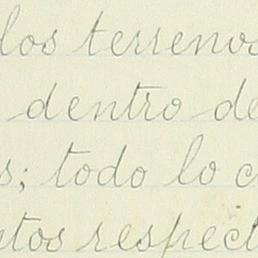 los terreno
dentro de
s; todo lo c
tos respect